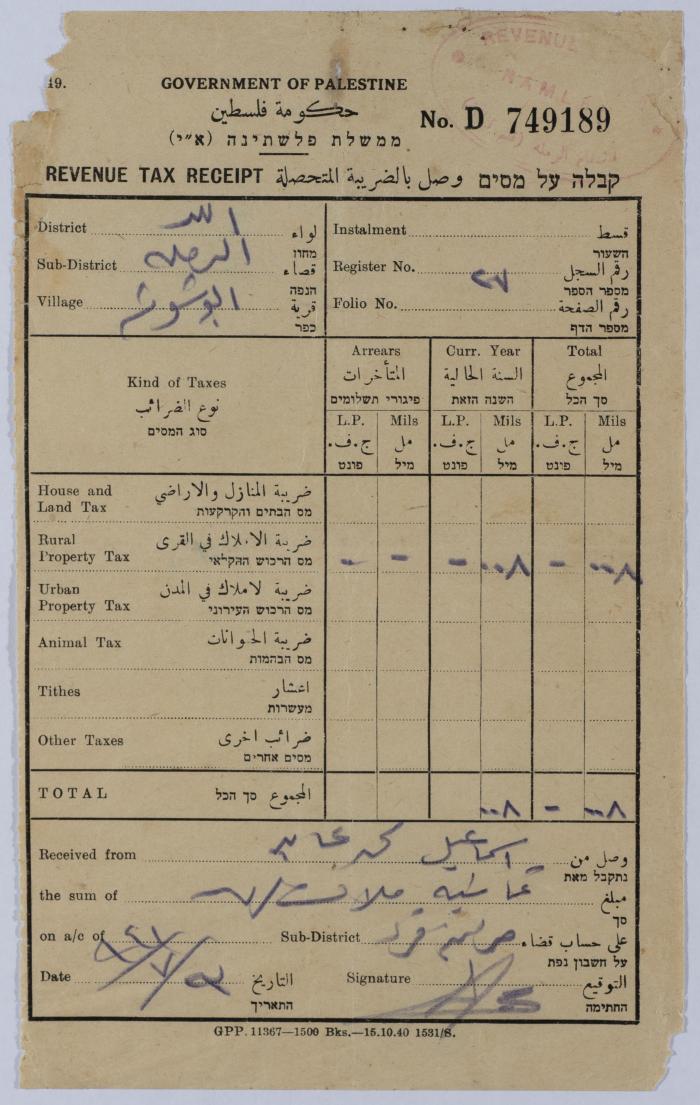 19.
GOVERNMENT OF PALESTINE
حكومة فلسطين
ממשלת פלשתינה (א״י)
No. D 749189
REVENUE
RAMLE
REVENUE TAX RECEIPT وصل بالضريبة المتحصلة קבלה על מסים
District اللد لواء
מחוז
Sub-District الرملة قضاء
הנפה
Village قرية
כפר
Instalment قسط
השעור
Register No. رقم السجل
מספר הספר
٢٧
Folio No. رقم الصفحة
מספר הדף
Kind of Taxes
نوع الضرائب
סוג המסים
Arrears Curr. Year Total
المتأخرات السنة الحالية المجموع
פיגורי תשלומים השנה הזאת סך הכל
L.P. Mils L.P. Mils L.P. Mils
ج.ف. مل ج.ف. مل ج.ف. مل
פונט מיל פונט מיל פונט מיל
House and Land Tax ضريبة المنازل والاراضي
מס הבתים והקרקעות
Rural Property Tax ضريبة الاملاك في القرى
מס הרכוש החקלאי
- - - ٠٠٨ - ٠٠٨
Urban Property Tax ضريبة لاملاك في المدن
מס הרכוש העירוני
Animal Tax ضريبة الحيوانات
מס הבהמות
Tithes اعشار
מעשרות
Other Taxes ضرائب اخرى
מסים אחרים
TOTAL المجموع סך הכל ٠٠٨ - ٠٠٨
Received from اسماعيل محمد وصل من
נתקבל מאת
the sum of ثمانية ملات مبلغ
סך
on a/c of Sub-District على حساب قضاء
על חשבון נפת
Date التاريخ
התאריך
Signature التوقيع
החתימה
GPP. 11367—1500 Bks.—15.10.40 1531/S.